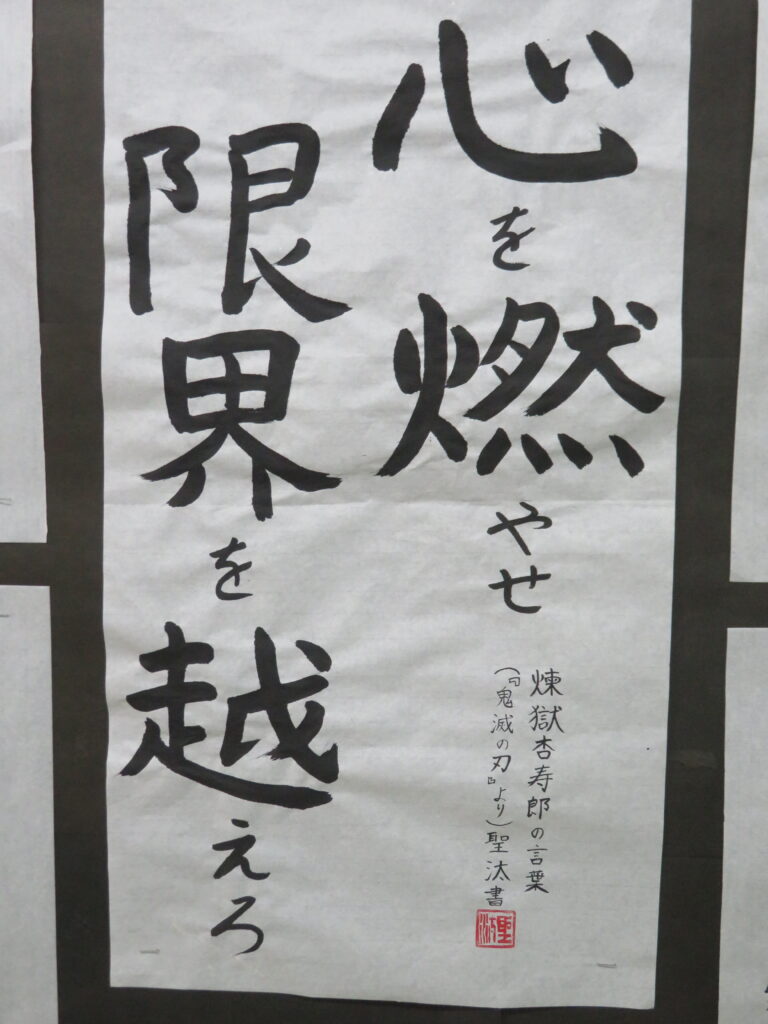 心を燃やせ
限界を越えろ
煉獄杏寿郎の言葉
(『鬼滅の刃』より)聖汰書